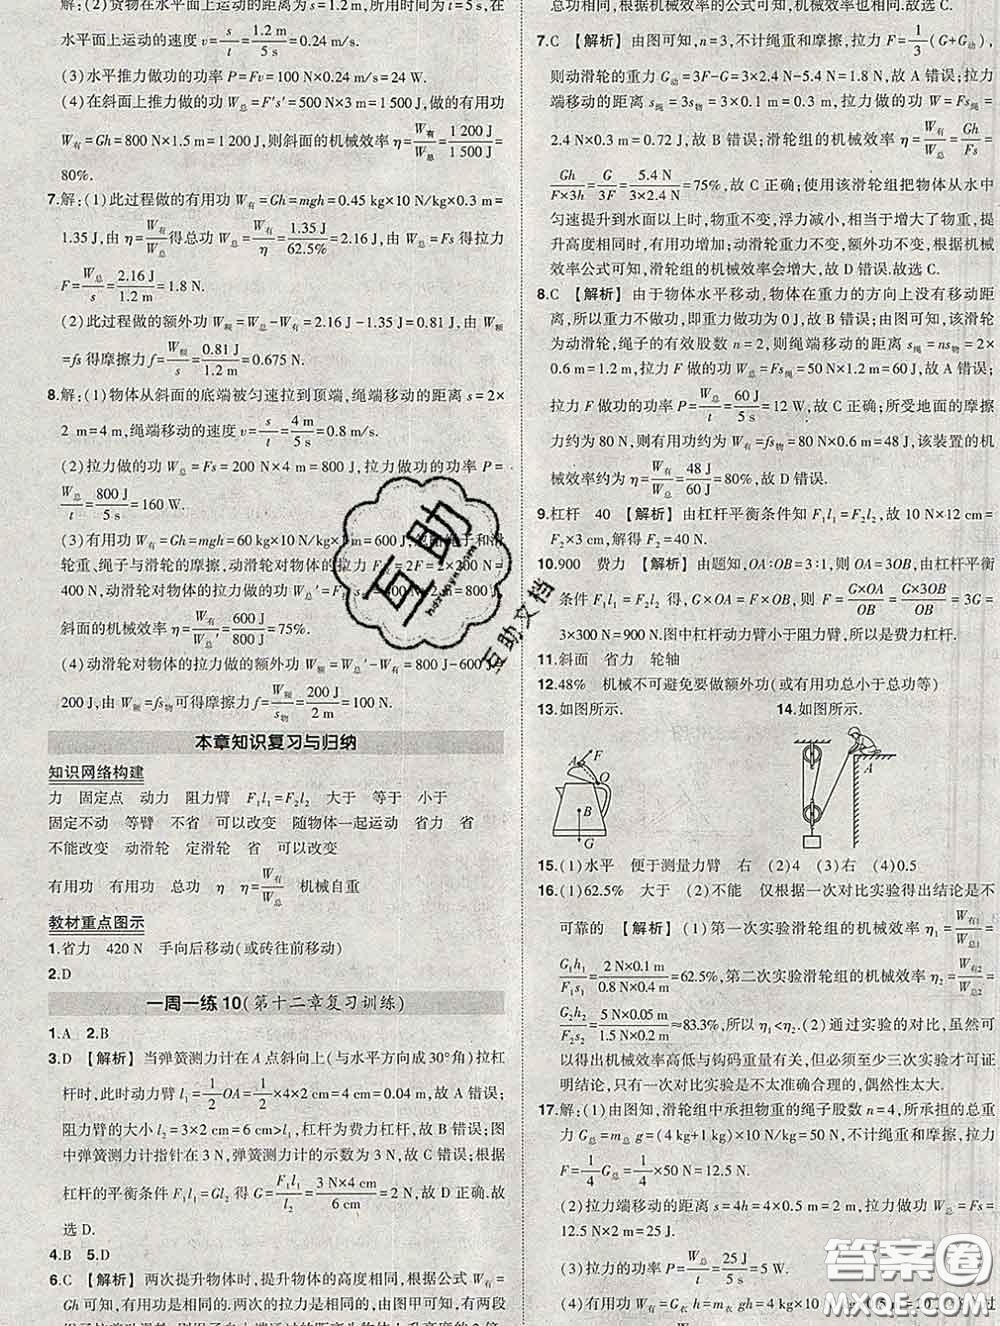 解:(2)货物在水平面上运动的距离s=1.2 m,所用时间t=5 s,在
水平面上运动的速度v=s/t=1.2 m/5 s=0.24 m/s.
(3)水平推力做功的功率P=Fv=100 N×0.24 m/s=24 W.
(4)在斜面上推力做的功W总=F′s′=500 N×3 m=1 500 J,做的有用功
W有=Gh=800 N×1.5 m=1 200 J,则斜面的机械效率η=W有/W总=1 200 J/1 500 J=
80%.
7.解:(1)此过程做的有用功W有=Gh=mgh=0.45 kg×10 N/kg×0.3 m=
1.35 J,由η=W有/W总得总功W总=W有/η=1.35 J/62.5%=2.16 J,由W总=Fs得拉力
F=W总/s=2.16 J/1.2 m=1.8 N.
(2)此过程做的额外功W额=W总-W有=2.16 J-1.35 J=0.81 J,由W额
=fs得摩擦力f=W额/s=0.81 J/1.2 m=0.675 N.
8.解:(1)物体从斜面的底端被匀速拉到顶端,绳端移动的距离s=2×
2 m=4 m,绳端移动的速度v=s/t=4 m/5 s=0.8 m/s.
(2)拉力做的功W总=Fs=200 N×4 m=800 J,拉力做功的功率P=
W总/t=800 J/5 s=160 W.
(3)有用功W有=Gh=mgh=60 kg×10 N/kg×1 m=600 J,绳和滑
轮重、绳子与滑轮的摩擦,动滑轮对物体的拉力F=2F=2×200 N=
400 N,动滑轮对物体的拉力做的总功W总′=400 N×2 m=800 J,
斜面的机械效率η=W有/W总′=600 J/800 J=75%.
(4)动滑轮对物体的拉力做的额外功W额=W总′-W有=800 J-600 J=
200 J,由W额=fs物得摩擦力f=W额/s物=200 J/2 m=100 N.
本章知识复习与归纳
知识网络构建
力 固定点 动力 阻力臂 F1l1=F2l2 大于 等于 小于
固定不动 等臂 不省 可以改变 随物体一起运动 省力 省
不能改变 动滑轮 定滑轮 省 可以改变
有用功 有用功 总功 η η=W有/W总 机械自重
教材重点图示
1.省力 420 N 手向后移动(或砖往前移动)
2.D
一周一练10(第十二章复习训练)
1.A 2.B
3.D 【解析】当弹簧测力计在A点斜向上(与水平方向成30°角)拉杠
杆时,此时动力臂l1=1/2OA=1/2×4×2 cm=4 cm=0.04 m,故A错误;
阻力臂的大小l2=3×2 cm=6 cm>l1,杠杆为费力杠杆,故B错误;图
中弹簧测力计指针在3 N,弹簧测力计的示数为3 N,故C错误;根据
杠杆的平衡条件F1l1=Gl2得G=F1l1/l2=3 N×4 cm/6 cm=2 N,故D正确.故
选D.
4.B 5.D
6.C 【解析】两次提升物体时,提升物体的高度相同,根据公式W有=
Gh可知有用功是相同的.两次的拉力是相同的,由图甲可知,有两段
总功相同,根据机械效率的公式可知,机械效率也相同.故选C.
7.C 【解析】由图可知,n=3,不计绳重和摩擦,拉力F=1/3(G+G动),
则动滑轮的重力G动=3F-G=3×2.4 N-5.4 N=1.8 N,故A错误;拉力
端移动的距离s绳=3s物=3×0.1 m=0.3 m,拉力做的功W=Fs绳=
2.4 N×0.3 m=0.72 J,故B错误;滑轮组的机械效率η=W有/W总=Gh/Fs=
Gh/F×3h=G/3F=5.4 N/3×2.4 N=75%,故C正确;使用该滑轮组把物体从水中
匀速提升到水面以上时,物重不变,浮力减小,相当于增大了物重,提
升高度相同时,有用功增加;动滑轮重力不变,额外功不变,根据机械
效率公式可知,滑轮组的机械效率会增大,故D错误.故选C.
8.C 【解析】由于物体水平移动,物体在重力的方向上没有移动距
离,所以重力不做功,即重力做功为0 J,故B错误;由图可知,该滑轮
为动滑轮,绳子的有效股数n=2,则绳端移动距离s绳=ns物=2×
0.6 m=1.2 m,拉力F做的功W总=Fs绳=50 N×1.2 m=60 J,故A错误;
拉力F做功的功率P=W总/t=60 J/5 s=12 W,故C正确;所受地面的摩擦
力约为80 N,则有用功约为W有=fs物=80 N×0.6 m=48 J,该装置的机
械效率约为η=W有/W总=48 J/60 J=80%,故D错误.
9.杠杆 40 【解析】由杠杆平衡条件知F1l1=F2l2,故10 N×12 cm=
F2×3 cm,解得F2=40 N.
10.900 费力 【解析】由题知,OA∶OB=3∶1,则OA=3OB,由杠杆平衡
条件F1l1=F2l2得,G×OA=F×OB,则F=G×OA/OB=G×3OB/OB=3G=
3×300 N=900 N.图中杠杆动力臂小于阻力臂,所以是费力杠杆.
11.斜面 省力 轮轴
12.48% 机械不可避免要做额外功(或有用功总小于总功等)
13.如图所示. 14.如图所示.
F O A B G
A
15.(1)水平 便于测量力臂 右 (2)4 (3)右 (4)0.5
16.(1)62.5% 大于 (2)不能 仅根据一次对比实验得出结论是不
可靠的 【解析】(1)第一次实验滑轮组的机械效率η1=W有1/W总1=
G1h1/F1s1=2 N×0.1 m/0.8 N×0.4 m=62.5%,第二次实验滑轮组的机械效率η2=W有2/W总2=
G2h2/F2s2=5 N×0.05 m/1.5 N×0.2 m≈83.3%,所以η1<η2.(2)通过实验的对比,虽然可
以得出机械效率高低与钩码重量有关,但必须至少三次实验才可证
明结论,只有一次对比实验是不太准确合理的,偶然性太大.
17.解:(1)由图知,滑轮组中承担物重的绳子股数n=4,所承担的总重
力G总=m总g=(4 kg+1 kg)×10 N/kg=50 N,不计绳重和摩擦,拉力
F=1/4G总=1/4×50 N=12.5 N.
(2)拉力端移动的距离s=4h=4×0.5 m=2 m,拉力做功W总=Fs=
12.5 N×2 m=25 J.
(3)拉力做功的功率P=W总/t=25 J/5 s=5 W.
(4)有用功W有=G衣h=m衣gh
互助
hdzuoye.com
互助文档
答案圈
MXQE.COM